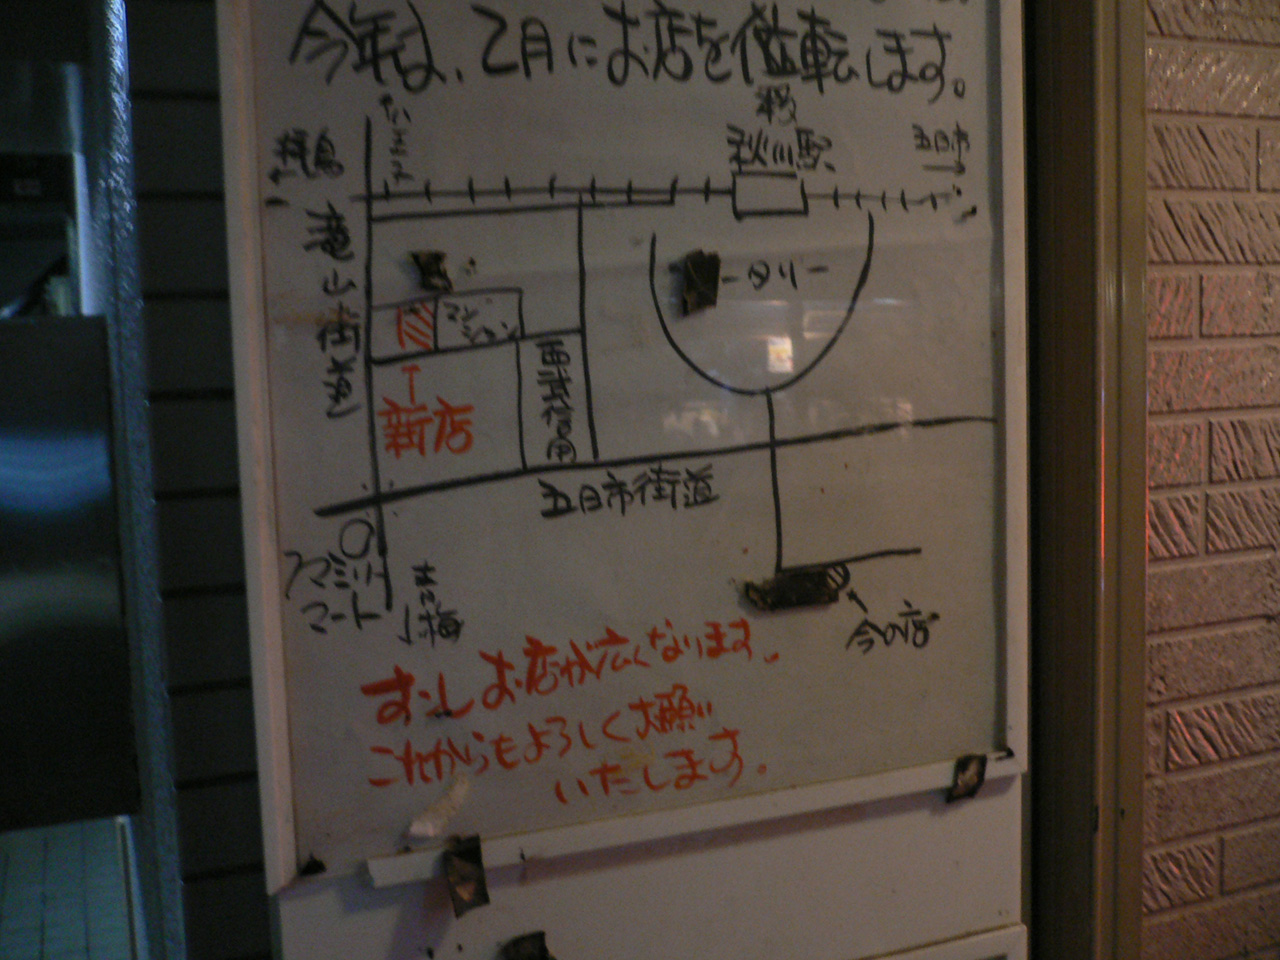 今年は、2月にお店を移転します。
秋川駅
五日市
→
拝島
←
滝山街道
ータリー
マンション
西武信用
新店
五日市街道
ファミリー
マート
青梅
今の店
すこしお店が広くなります。
これからもよろしくお願い
いたします。